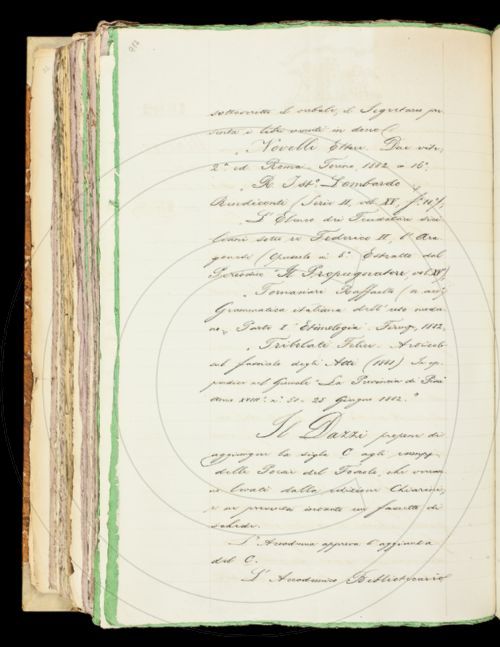 sottoscritto il verbale, il Segretario pre
senta i libri venuti in dono:
„Novelli Ettore. Due vite,
2ª ed. Roma. Torino, 1882 in 16°.
„R. Istº Lombardo
Rendiconti (Serie II, vol. XV, f.
„L' Elenco dei Feudatari sici
liani sotto re Federico II, l' Ara
gonese (Opuscolo in 8° Estratto dal
Periodico "Il Propugnatore, vol. XV")
„Fornaciari Raffaello (n. acc.)
Grammatica italiana dell' uso moder
no, Parte I Etimologia. Firenze, 1882.
„Tribolati Felice. Articolo
sul fascicolo degli Atti (1881)
al Giornale "La Provincia di Pisa
anno XVIIIº nº 50 - 25 Giugno 1882."
Il Dazzi propone di
aggiungere la sigla C agli esempj
delle Poesie del Fagiuoli, che
levati dalla edizione
e ne presenta
schede.
L' Accademia approva l' aggiunta
del C.
L' Accademico Bibliotecario